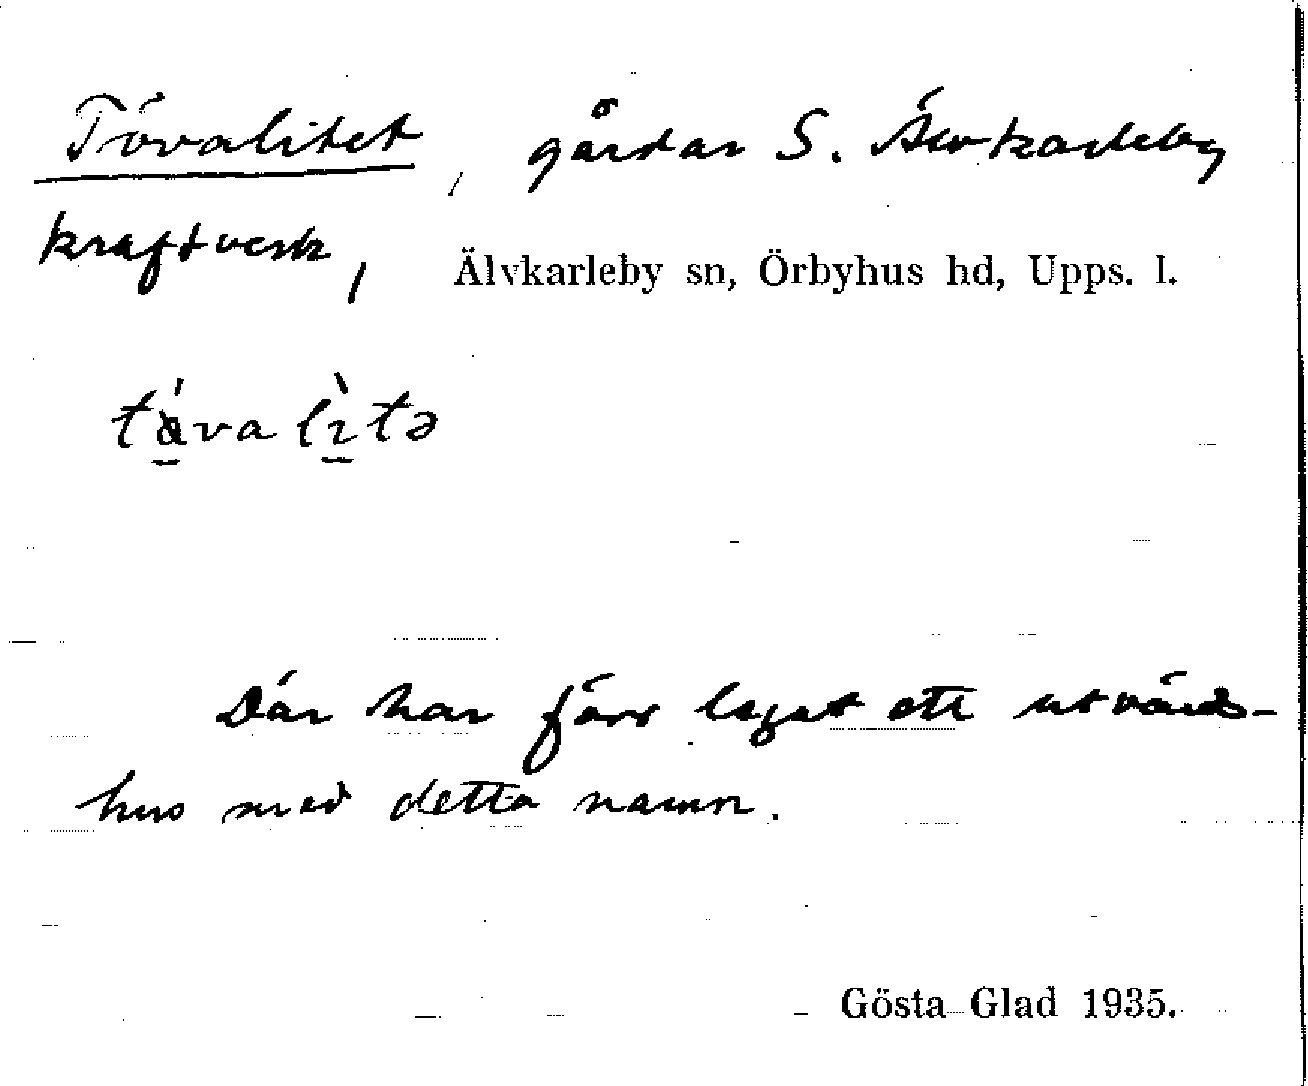 Tövalitet, gårdar S. Älvkarleby
kraftverk,
Älvkarleby sn, Örbyhus hd, Upps. l.
tåva lìtə
Där har förr legat ett utvärds-
hus med detta namn.
Gösta Glad 1935.